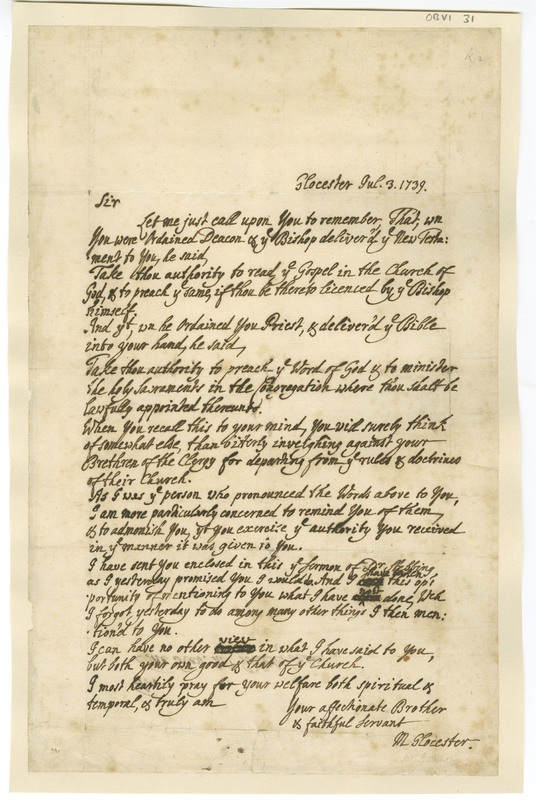 OBVI 31
Glocester Jul. 3. 1739.
Sir
Let me just call upon You to remember, That, wn
You were Ordained Deacon & ye Bishop deliver'd ye New Testa:
ment to You, he said,
Take thou authority to read ye Gospel in the Church of
God, & to preach ye same, if thou be thereto licenced by ye Bishop
himself.
And yt, wn he Ordained You Priest, & deliver'd ye Bible
into your hand, he said,
Take thou authority to preach ye Word of God & to minister
the holy Sacraments in the Congregation where thou shalt be
lawfully appointed thereunto.
When You recall this to your mind, You will surely think
of somewhat else, than bitterly inveighing against your
Brethren of the Clergy for departing from ye rules & doctrines
of their Church.
As I was ye person who pronounced the Words above to You,
I am more particularly concerned to remind You of them,
& to admonish You, yt You exercise ye authority You received
in ye manner it was given to You.
I have sent you enclosed in this ye sermon of Dr. Stebbing
as I yesterday promised You I would. And I have taken this op:
portunity of mentioning to You what I have now done, wch
I forgot yesterday to do among many other things I then men:
tion'd to You.
I can have no other view in what I have said to You,
but both your own good & that of ye Church.
I most heartily pray for your welfare both spiritual &
temporal, & truly am
Your affectionate Brother
& faithful Servant
M. Glocester.